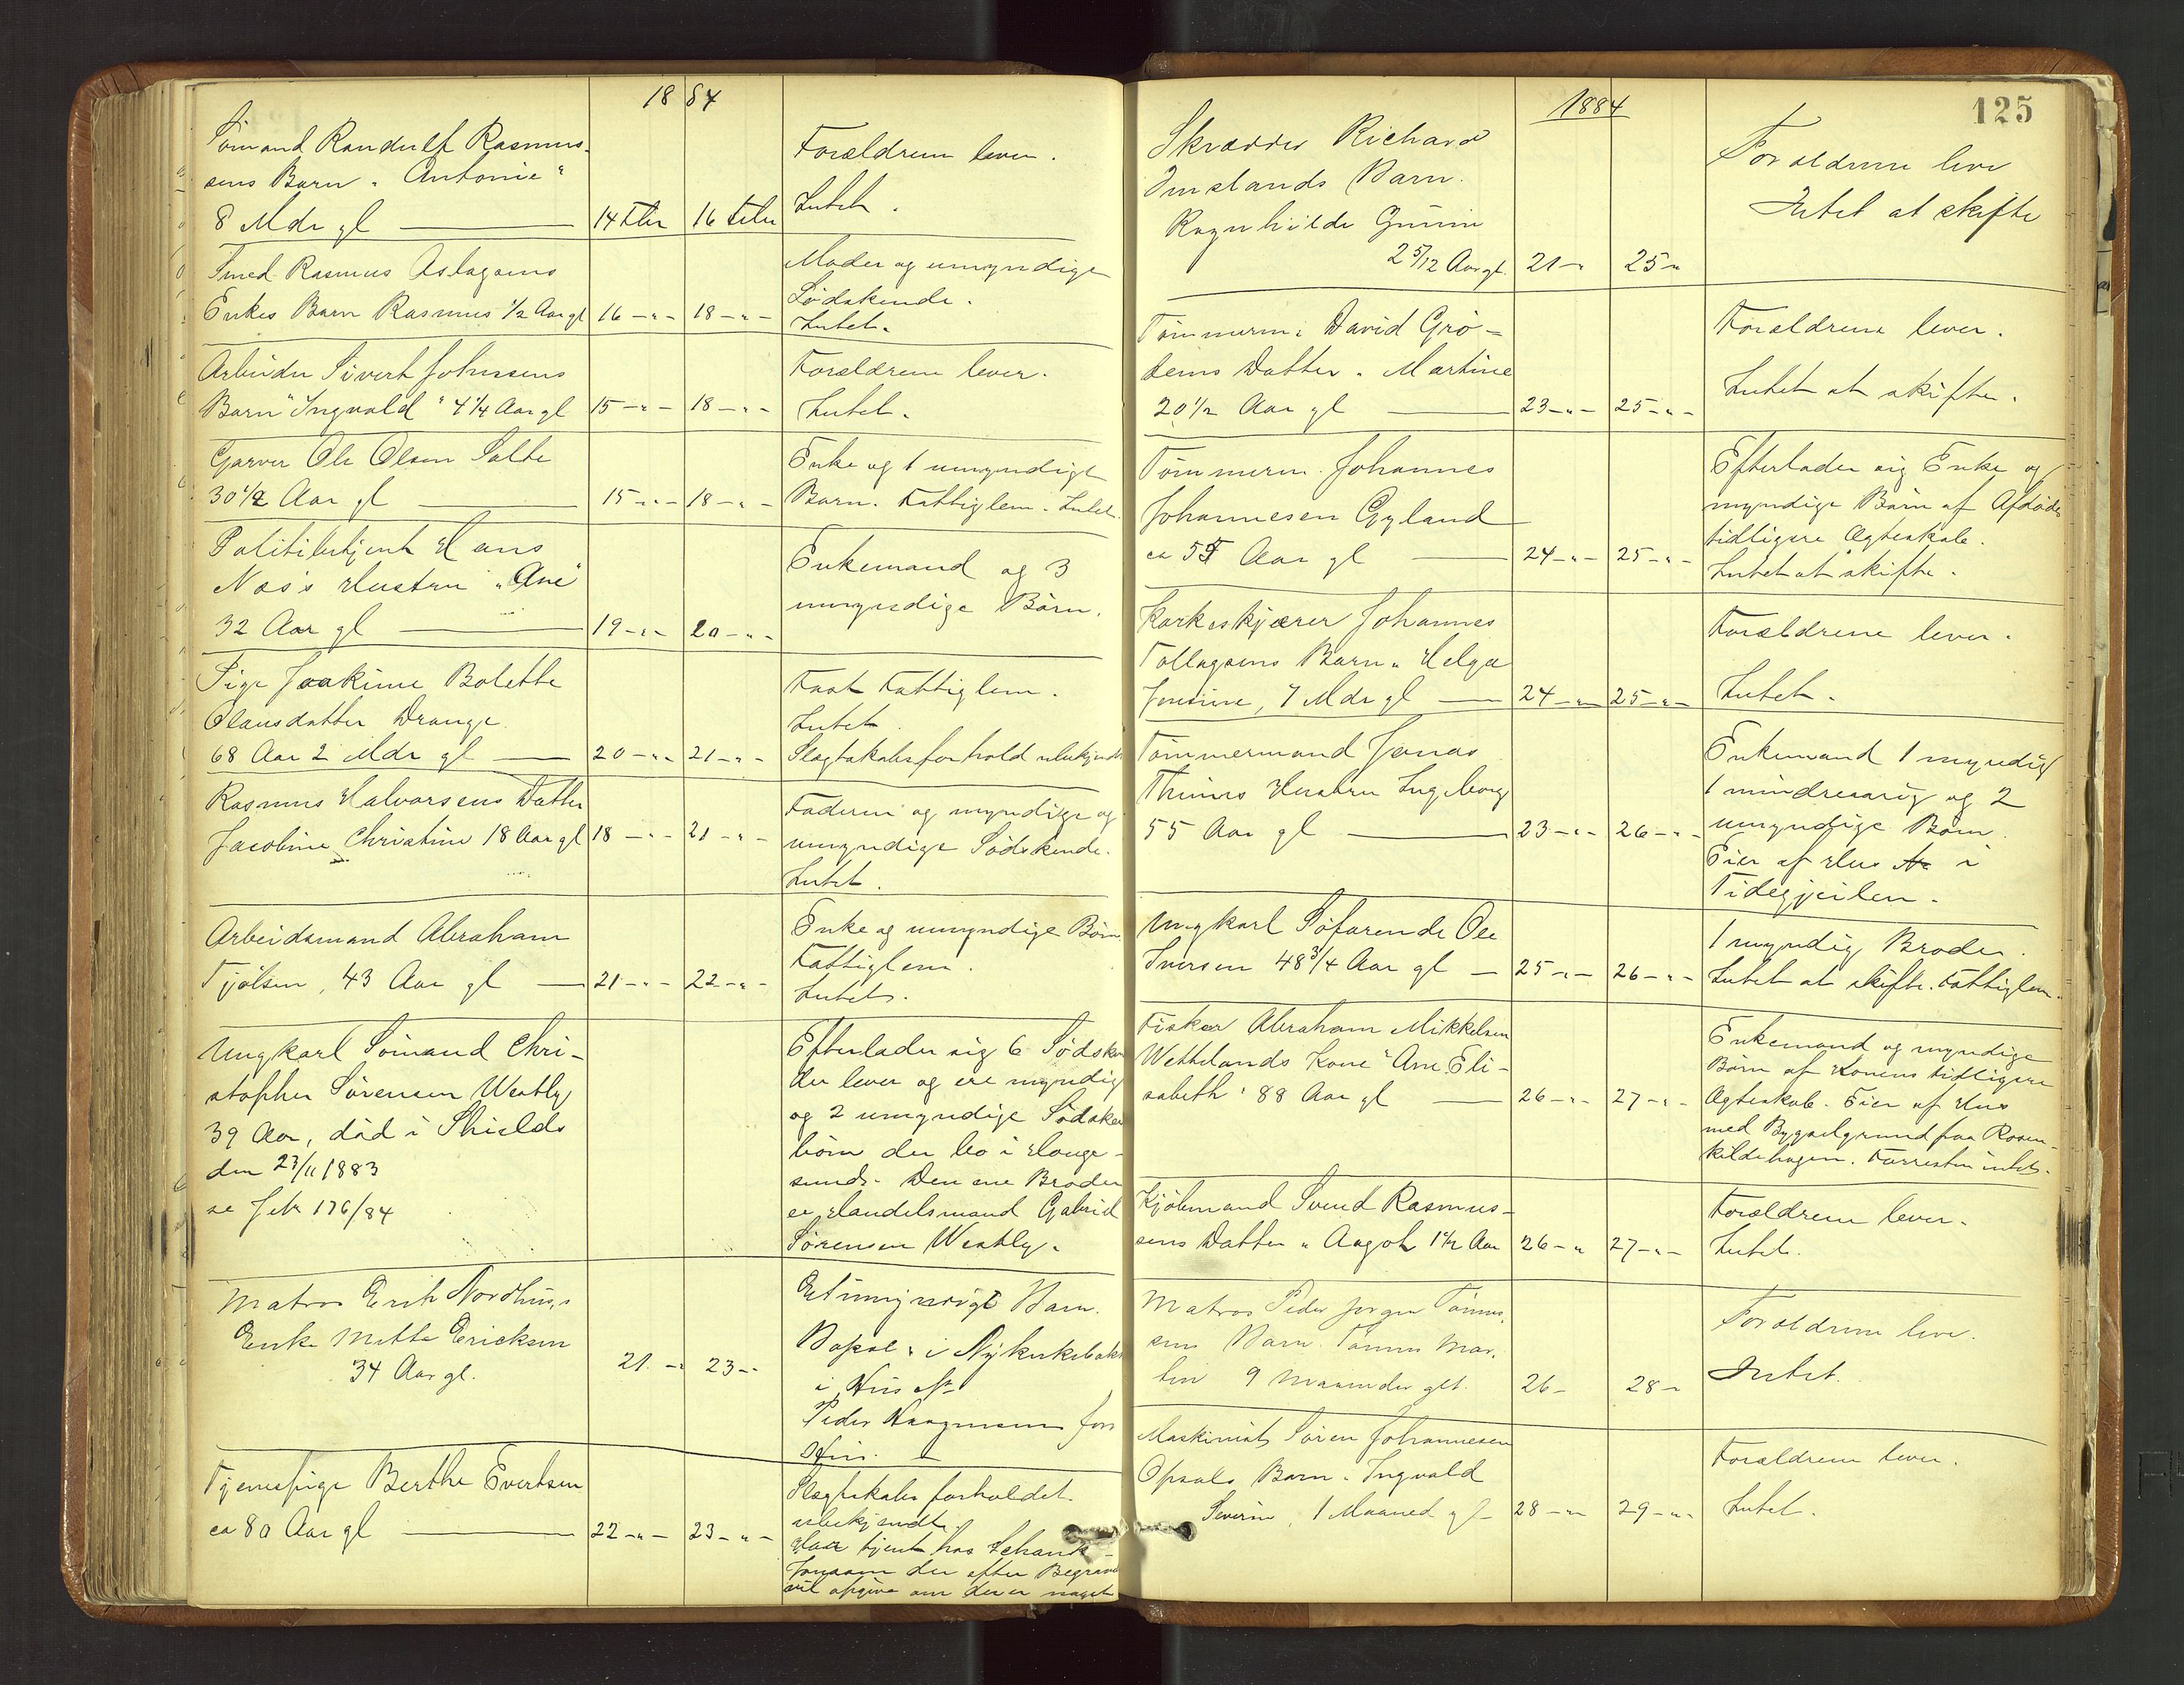 1884
Sömand Randulf Rasmus-
sens Barn "Antonie"
8 Mdr gl 14 Febr 16 Febr
Forældrene lever.
Intet.
Smed Rasmus Aslagsens
Enkes Barn Rasmus 1/2 Aar gl 16 - " - 18 - " -
Moder og umyndige
Södskende.
Intet.
Arbeider Sivert Johnsens
Barn "Ingvald" 4 1/4 Aar gl 15 - " - 18 - " -
Forældrene lever.
Intet.
Garver Ole Olsen Salte
30 1/2 Aar gl 15 - " - 18 - " -
Enke og 1 umyndigt
Barn. Fattiglem. Intet.
Politibetjent Hans
Næs's Hustru "Ane"
32 Aar gl 19 - " - 20 - " -
Enkemand og 3
umyndige Börn.
Pige Joakime Bolette
Olausdatter Drange
68 Aar 2 Mdr gl 20 - " - 21 - " -
Fast Fattiglem.
Intet.
Slægtskabsforhold ubekjendt
Rasmus Halvorsens Datter
Jacobine Christine 18 Aar gl 18 - " - 21 - " -
Faderen og myndige og
umyndige Södskende.
Intet.
Arbeidsmand Abraham
Tjölsen, 43 Aar gl 21 - " - 22 - " -
Enke og umyndige Börn
Fattiglem.
Intet.
Ungkarl Sömand Chri-
stopher Sörensen Westly
39 Aar, död i Shields
den 23/11 1883
se Jek 176/84
Efterlader sig 6 Södsken
der lever og ere myndig
og 2 umyndige Södsken
börn der bo i Hauge-
sund. Den ene Broder
er Handelsmand Gabriel
Sörensen Westly.
Matros Erik Nordhus's
Enke Mette Ericksen
34 Aar gl. 21 - " 23 - "
Et umyndigt Barn.
Bopæl i Nykirkebak
i Hus
Peder
Tjenestpige Berthe Evertsen
ca 80 Aar gl 22 - " - 23 - " -
Slægtskabs forholdet
ubekjendte.
Har tjent hos Schanke-
der efter Begravel
vil opgive om der er noget
1884
125
Skrædder Richard
Imslands Barn.
Ragnhilde Gunine
2 5/12 Aar gl. 21 - " 25 - "
Forældrene leve
Intet at skifte
Tömmerm. David Grö-
dems Datter "Martine
20 1/2 Aar gl 23 - " - 25 - " -
Forældrene lever.
Intet at skifte.
Tömmerm. Johannes
Johannesen Gyland
ca 55 Aar gl 24 - " - 25 - " -
Efterlader sig Enke og
myndige Börn af Afdödes
tidligere Ægteskab.
Intet at skifte.
Korkeskjærer Johannes
Tollagsens Barn "Helga
Jonsine, 7 Mdr gl 24 - " - 25 - " -
Forældrene lever.
Intet.
Tömmermand Jonas
Thimes Hustru Ingeborg
55 Aar gl 23 - " - 26 - " -
Enkemand 1 myndig
1 mindreaarig og 2
umyndige Börn.
Eier af Hus i
Tidegjeilen.
Ungkarl Söfarende Ole
Iversen 48 3/4 Aar gl 25 - " - 26 - " -
1 myndig Broder.
Intet at skifte. Fattiglem.
Fisker Abraham Mikkelsen
Wettelands Kone "Ane Eli-
sabeth" 88 Aar gl 26 - " - 27 - " -
Enkemand og myndige
Börn af Konens tidligere
Ægteskab. Eier af Hus
med Bygselgrund paa Rosen-
kildehagen. Forresten intet.
Kjöbmand Svend Rasmus-
sens Datter "Aagot 1 1/2 Aar 26 - " 27 - " -
Forældrene lever.
Intet.
Matros Peder Jörgen Tönnes-
sens Barn Tönnes Mar-
tin 9 Maaneder glt. 26 - 28 - "
Forældrene leve.
Intet.
Maskinist Sören Johannesen
Opsals Barn "Ingvald
Severin, 1 Maaned gl 28 - " - 29 - " -
Forældrene lever.
Intet.